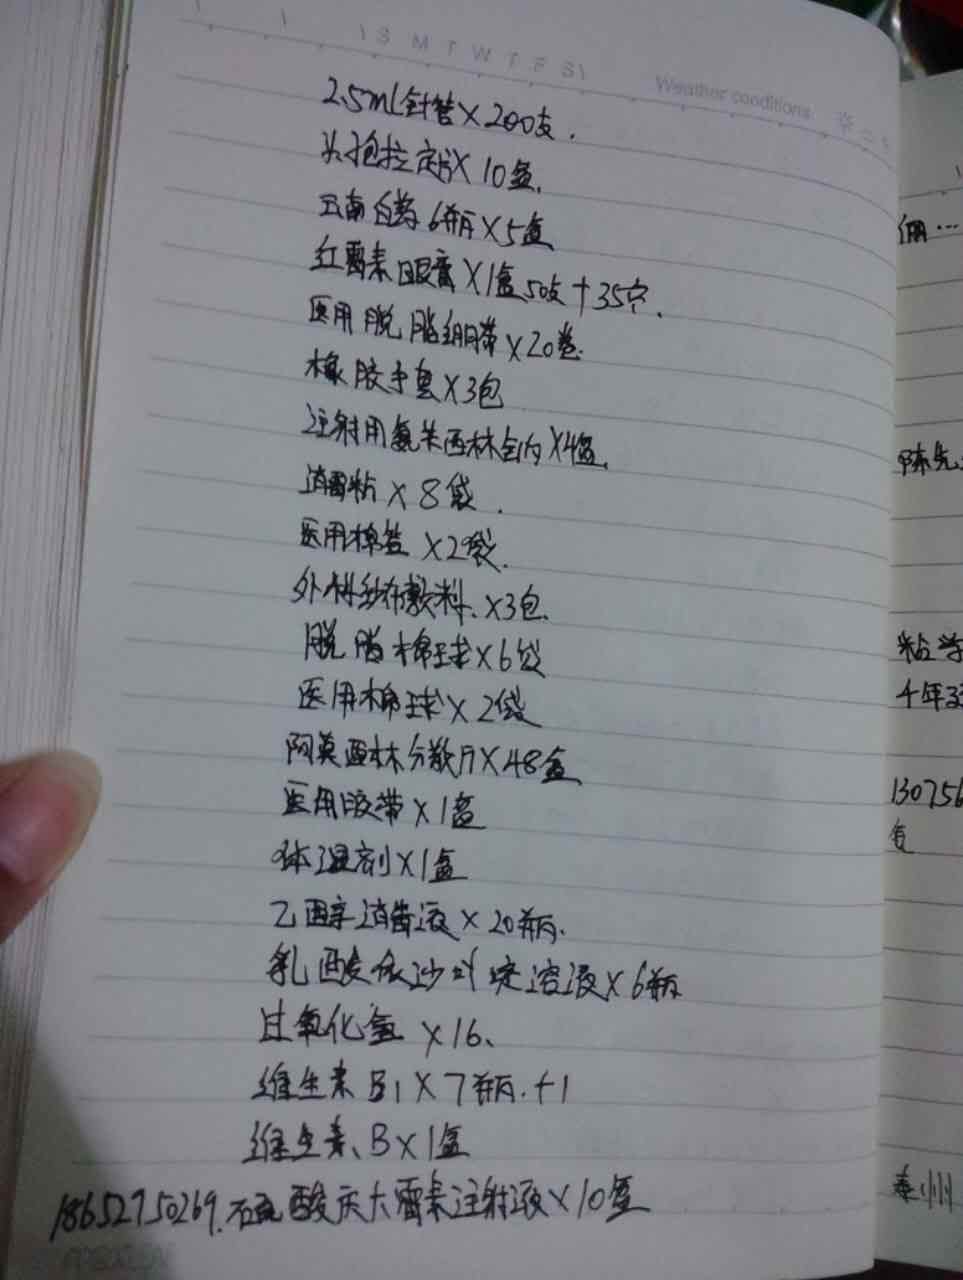 S M T W T F S
Weather conditions
2.5ml针管×200支.
头孢拉定片×10盒.
云南白药6瓶×5盒
红霉素眼膏×1盒50支+35只.
医用脱脂绷带×20卷.
橡胶手套×3包
注射用氨苄西林钠×4盒.
消毒粉×8袋.
医用棉签×29袋.
外科纱布敷料.×3包.
脱脂棉球×6袋
医用棉球×2袋
阿莫西林分散片×48盒
医用胶带×1盒
体温剂×1盒
乙醇消毒液×20瓶.
乳酸依沙吖啶溶液×6瓶
过氧化氢×16、
维生素B1×7瓶.+1
维生素、B×1盒
18652750269.硫酸庆大霉素注射液×10盒
俪…
陈先
粘学
千年
130756
包
泰州